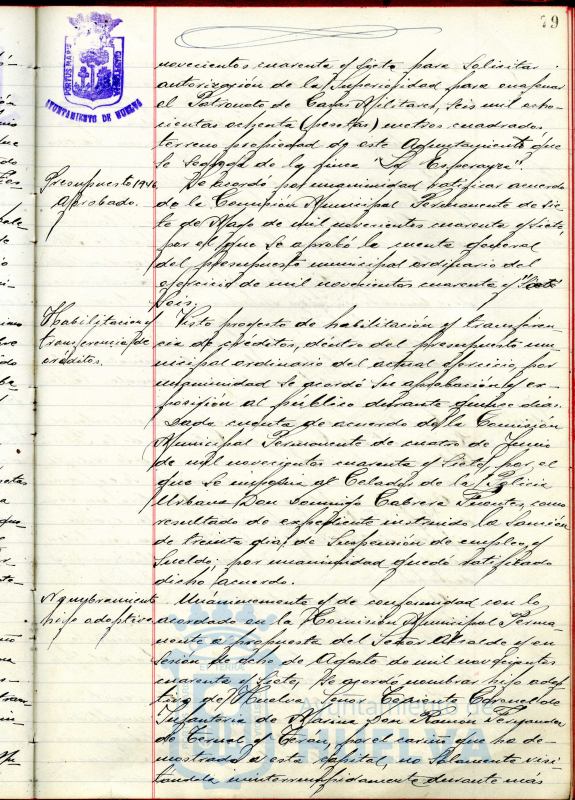 79
AYUNTAMIENTO DE HUELVA
novecientos cuarenta y siete para solicitar
autorización de la Superioridad para enajenar
al Patronato de Casas Militares, seis mil ocho-
cientas ochenta (pesetas) metros cuadrados,
terreno propiedad de este Ayuntamiento que
se segrega de la finca "La Esperanza".
Presupuesto 1946
aprobado.
Se acordó por unanimidad ratificar acuerdo
de la Comisión Municipal Permanente de sie-
te de Mayo de mil novecientos cuarenta y siete,
por el que se aprobó la cuenta general
del presupuesto municipal ordinario del
ejercicio de mil novecientos cuarenta y "siete"
seis.
Habilitación y
transferencia de
créditos.
Visto proyecto de habilitación y transferen-
cia de créditos, dentro del presupuesto mu-
nicipal ordinario del actual ejercicio, por
unanimidad se acordó su aprobación y ex-
posición al público durante quince días.
Dada cuenta de acuerdo de la Comisión
Municipal Permanente de cuatro de Junio
de mil novecientos cuarenta y siete, por el
que se imponía al Celador de la Policía
Urbana Don Domingo Cabrera Fuentes, como
resultado de expediente instruido, la sanción
de treinta días de suspensión de empleo y
sueldo, por unanimidad quedó ratificado
dicho acuerdo.
Nombramiento
hijo adoptivo
Unánimemente y de conformidad con lo
acordado en la Comisión Municipal Perma-
nente a propuesta del Señor Alcalde y en
sesión de ocho de Agosto de mil novecientos
cuarenta y siete, se acordó nombrar hijo adop-
tivo de Huelva, al Teniente Coronel de
Infantería de Marina Don Ramón
de Teran, por el cariño que ha de-
mostrado a esta capital, no solamente visi-
tándola ininterrumpidamente durante más
Ayuntamiento de
HUELVA